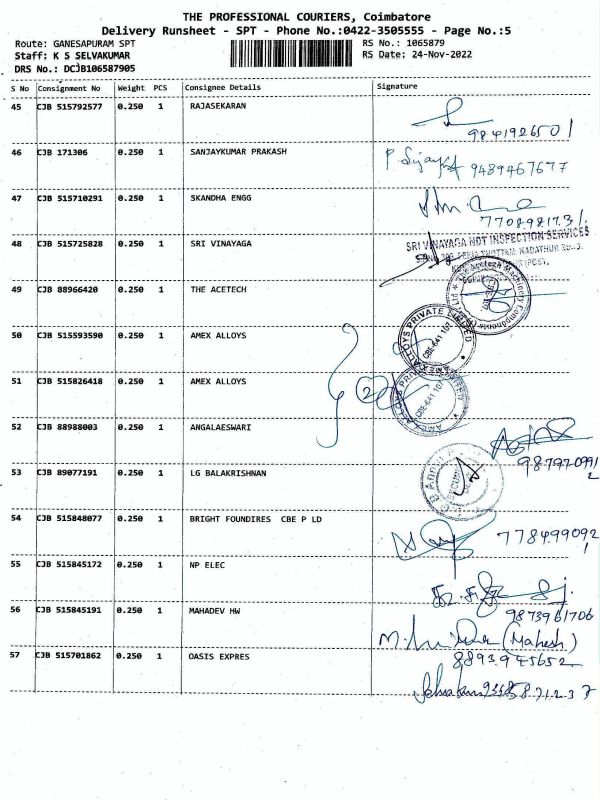 THE PROFESSIONAL COURIERS, Coimbatore
Delivery Runsheet - SPT - Phone No.:0422-3505555 - Page No.:5
Route: GANESAPURAM SPT
Staff: K S SELVAKUMAR
DRS No.: DCJB106587905
RS No.: 1065879
RS Date: 24-Nov-2022
S No Consignment No Weight PCS Consignee Details Signature
45 CJB 515792577 0.250 1 RAJASEKARAN
9841926501
46 CJB 171306 0.250 1 SANJAYKUMAR PRAKASH
9489467677
47 CJB 515710291 0.250 1 SKANDHA ENGG
48 CJB 515725828 0.250 1 SRI VINAYAGA
SRI VINAYAGA NDT INSPECTION SERVICES
49 CJB 88966420 0.250 1 THE ACETECH
The Acetech Machinery Components
50 CJB 515593590 0.250 1 AMEX ALLOYS
ALLOYS PRIVATE LIMITED
CBE-641 107
51 CJB 515826418 0.250 1 AMEX ALLOYS
CBE-641 107
52 CJB 88988003 0.250 1 ANGALAESWARI
53 CJB 89077191 0.250 1 LG BALAKRISHNAN
54 CJB 515848077 0.250 1 BRIGHT FOUNDIRES CBE P LD
7784990921
55 CJB 515845172 0.250 1 NP ELEC
9873961706
56 CJB 515845191 0.250 1 MAHADEV HW
(Mahesh)
8893945652
57 CJB 515701862 0.250 1 OASIS EXPRES